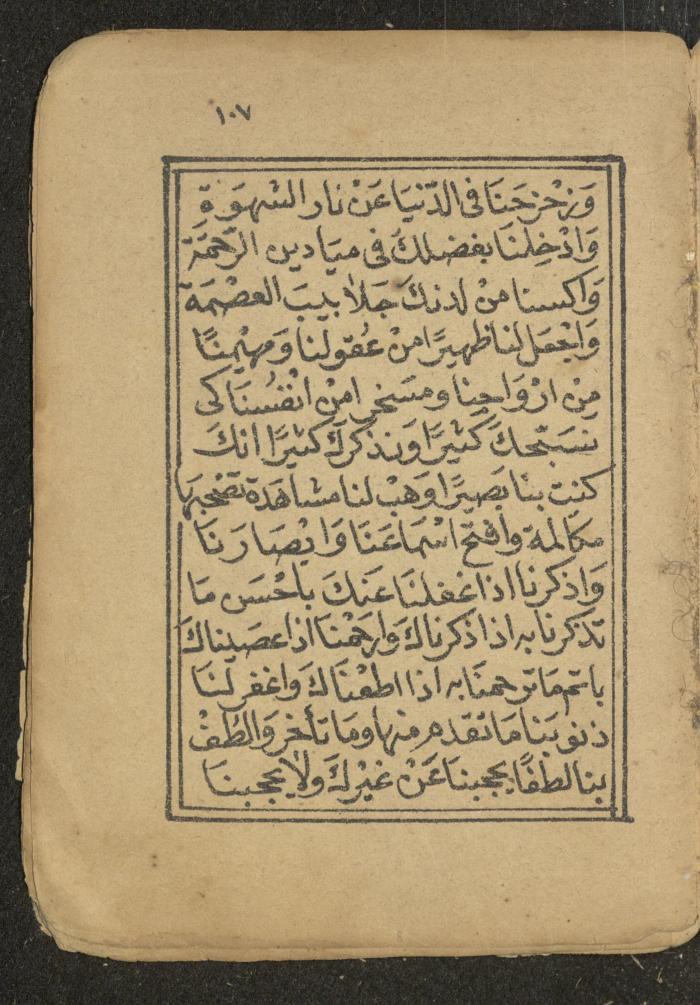 ١٠٧
وَزَحْزِحْنَا فِى الدّنْيَا عَنْ نار الشهوَةِ
وَادْخِلْنَا بفضلكَ فى ميَادين الرَّحمَة
وَاكسنا منْ لدنكَ جَلَابيبَ العصْمَة
وَاجْعَل لنا ظهيرًا منْ عُقولنا وَمهيْمنًا
مِنْ ارْوَاحِنا ومسَخرا منْ انْفُسنَا كى
نسَبّحكَ كثيرًا وَنذكركَ كثيرًا انكَ
كنت بنا بَصِيرًا وَهَبْ لنا مشاهَدَة تصْحبهَا
مكالمَة وافْتحْ اسْمَاعَنَا وَابْصَارَنَا
وَاذكرنا اذا غفلنَا عَنكَ باحْسَن مَا
تذكرنا به اذا ذكرناكَ وَارحَمْنَا اذا عصَيناكَ
باتم مَا ترحمنَا به اذا اطعْنَاكَ وَاغفر لنَا
ذنوبَنا مَا تقدم منها وما تأخر وَالطفْ
بنا لطفًا يحجبنا عَنْ غيْركَ ولا يحجبنَا